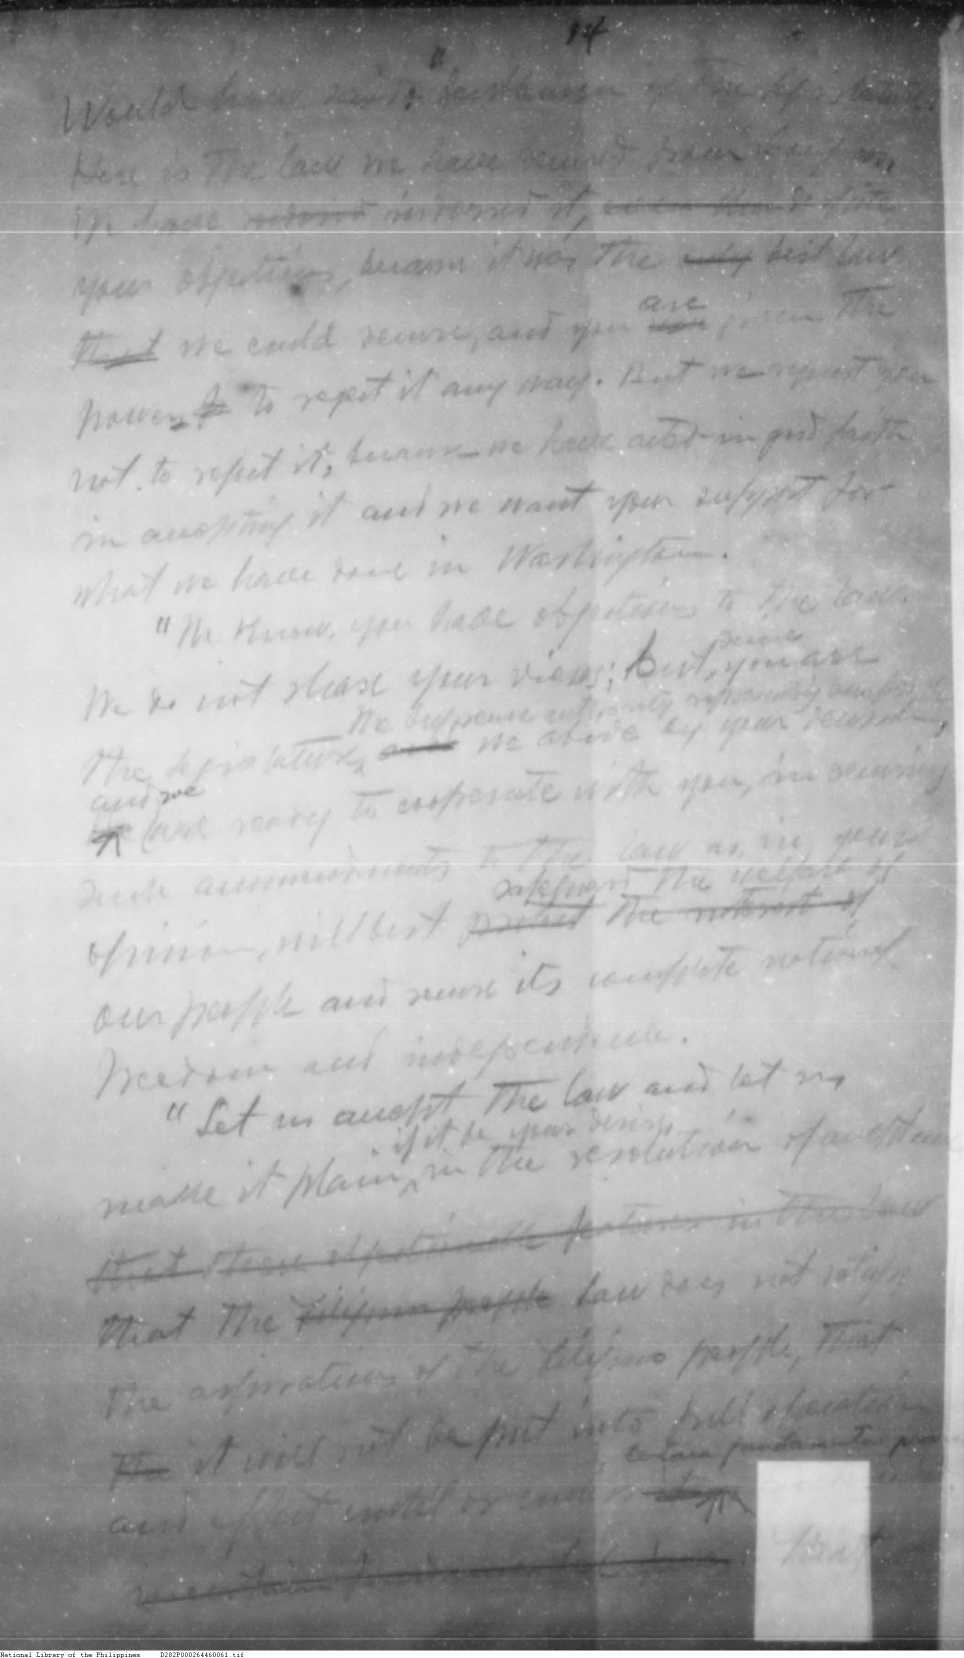 14
"
Would have said to the of the Legislature.
Here is the law we have secured from Congress,
We have indorsed it, despite
your objections, because it was the only best law
that we could secure, and you are given the
power to to reject it any way. But we request you
not to reject it, because we have acted in good faith
in accepting it and we want your support for
what we have done in Washington.
"We know you have objections to the law.
We do not share your views; But, since you are
the supreme authority representing our people
the legislature, and we abide by your decision,
and we
are ready to cooperate with you, in securing
such ammendments to the law as, in your
safeguard the welfare of
opinion, will best protect the interest of
our people and secure its complete national
freedom and independence.
"Let us accept the law and let us
if it be your desire
make it plain, in the resolution of acceptance
that these objectionable features in the law
that the Filipino people law does not satisfy
the aspirations of the Filipino people, that
the it will not be put into full operation
certain fundamental
and effect until or unless
certain fundamental